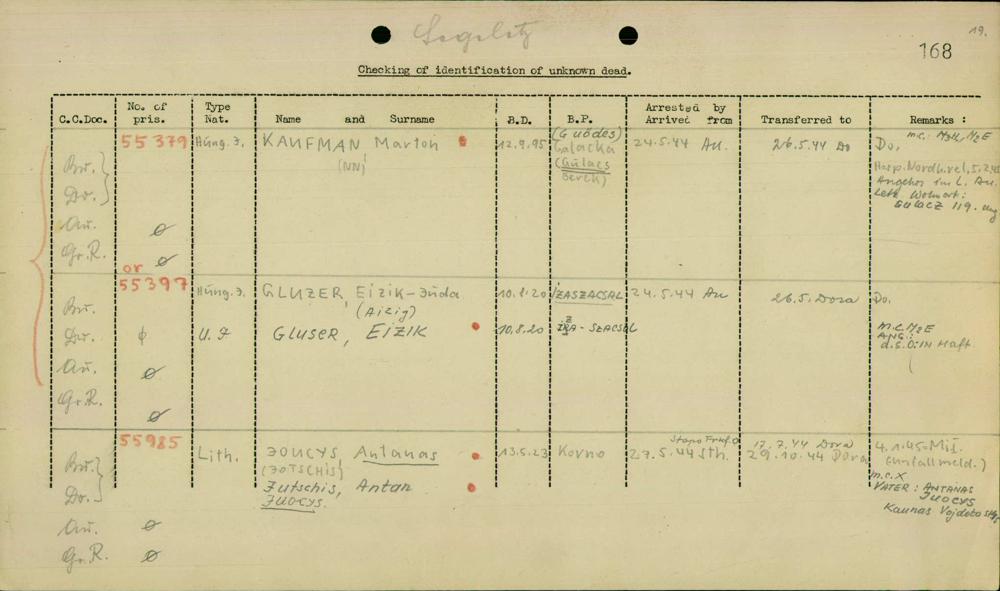 19.
Segeletz
168
Checking of identification of unknown dead.
C.C.Doc. No. of pris. Type Nat. Name and Surname B.D. B.P. Arrested by Arrived from Transferred to Remarks :
55379 Hung. J. KAUFMAN Marton 12.9.95 (Guodes) 24.5.44 Au. 26.5.44 Do Do, m.c.: M2E
(NN) Galacka
Bu. (Gulacs Hosp. Nordh. verl. 5.2.45
Do. Berek) Angehör. im L. Au.
Letz. Wohnort:
GULACZ 119. Ung
Au. ø
Gr.R. ø
or
55397 Hung. J. GLUZER, Eizik-Juda 10.8.20 IZASZACSAL 24.5.44 Au 26.5. Dora Do.
Bu. (Aizig)
Du. ϕ U. J GLUSER, EIZIK 10.8.20 IZA-SZACSAL m.c. M2E
ANG:
d.S.O: IN Haft.
Au. ø
Gr.R. ø
55985 Lith. JOUCYS, Antanas 13.5.23 Kovno Stapo 27.5.44 Sth. 17.7.44 Dora 4.1.45
Bu. (JOTSCHIS) 29.10.44 Dora (Unfallmeld.)
Do. Jutschis, Antan m.c.X
JUOCYS. VATER: ANTANAS
JUOCYS
Kaunas
Au. ø
Gr.R. ø